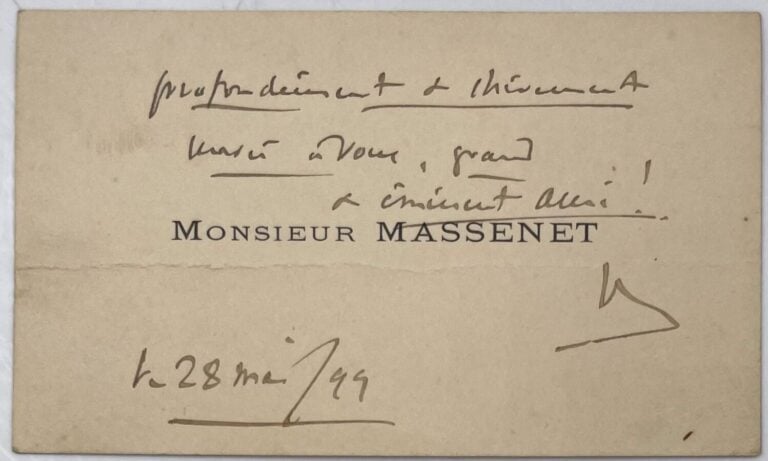 profondément & chèrement
merci à vous, grand
& éminent ami !
MONSIEUR MASSENET
le 28 mai/99